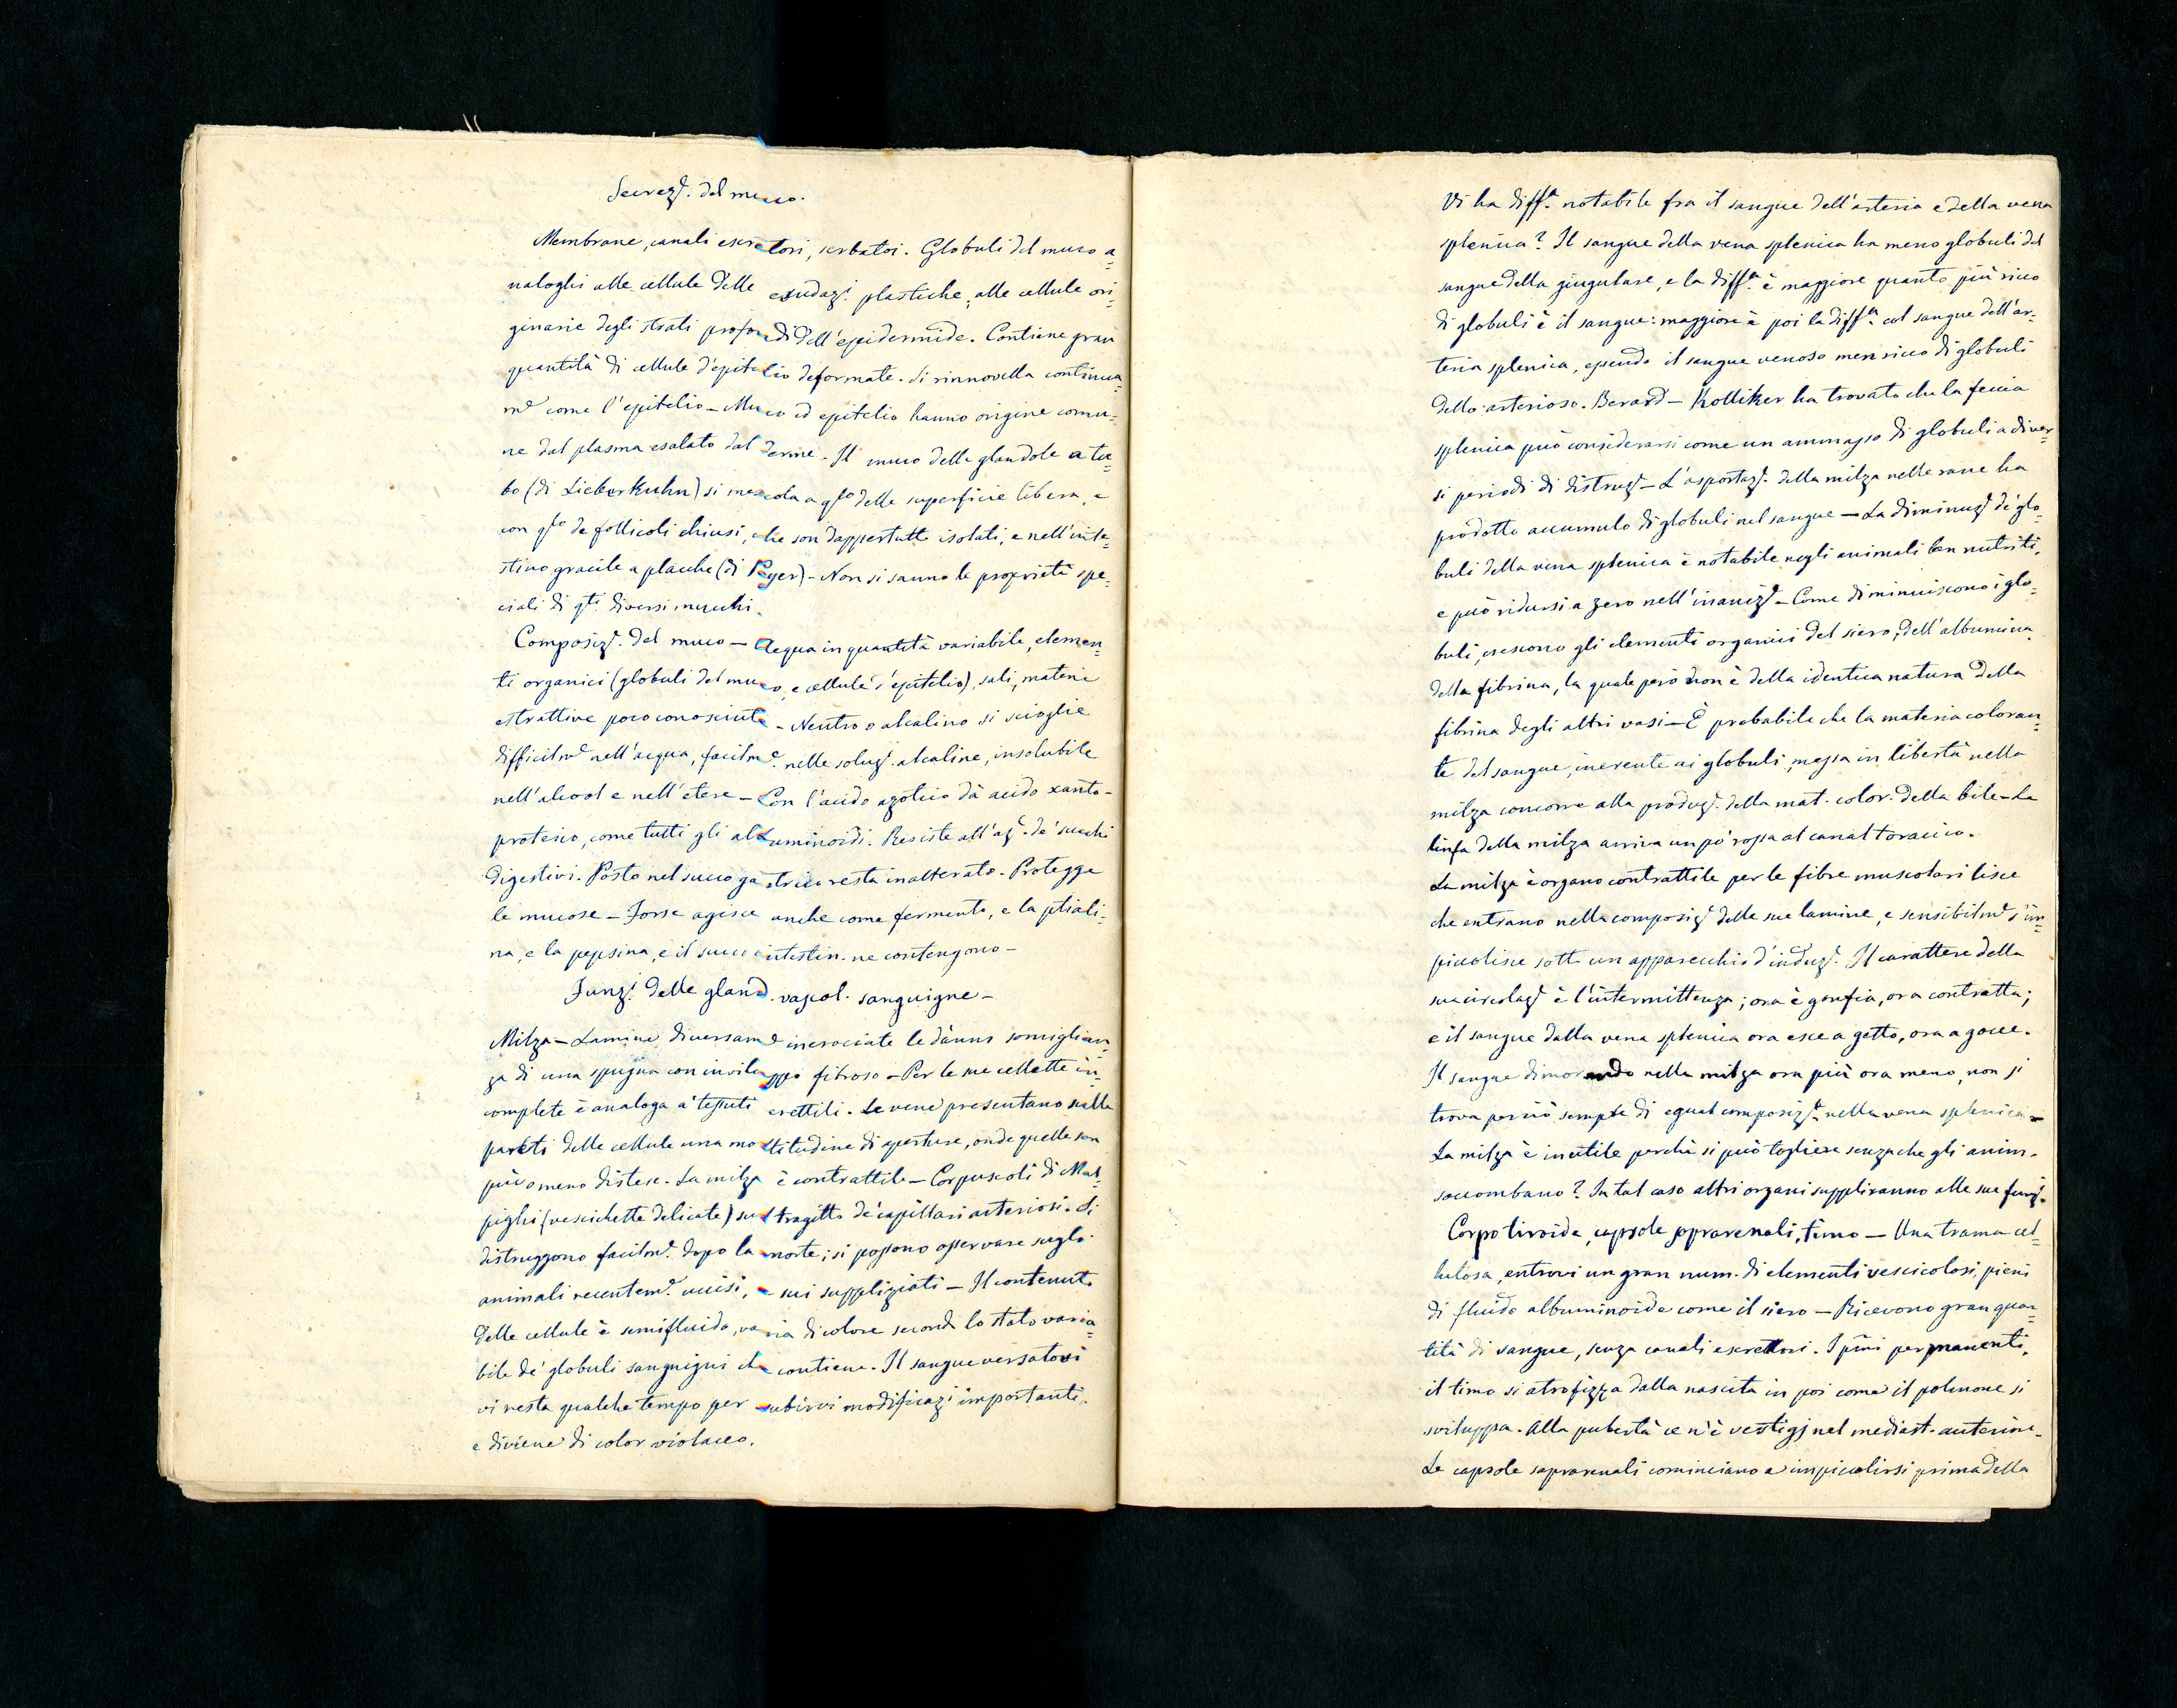 Secrez.e del muco.
Membrane, canali escretori, serbatoi. Globuli del muco a=
naloghi alle cellule delle esudaz.i plastiche, alle cellule ori=
ginarie degli strati profondi dell'epidermide. Contiene gran
quantità di cellule d'epitelio deformate. Si rinnovella continua=
m.e come l'epitelio – Muco ed epitelio hanno origine comu=
ne dal plasma esalato dal derme. Il muco delle glandole a tu=
bo (di Lieberkuhn) si mescola a q.lo delle superficie libera, e
con q.lo de follicoli chiusi, che son dappertutto isolati, e nell'inte=
stino gracile a placche (di Peyer) – Non si sanno le proprietà spe=
ciali di q.ti diversi mucchi.
Composiz.e del muco – Acqua in quantità variabile, elemen=
ti organici (globuli del muco, e cellule d'epitelio), sali, materie
estrattive poco conosciute – Neutro o alcalino si scioglie
difficilm.e nell'acqua, facilm.e nelle soluz.i alcaline, insolubile
nell'alcool e nell'etere – Con l'acido azotico dà acido xanto-
proteico, come tutti gli albuminoidi. Resiste all'az.e de' succhi
digestivi. Posto nel succo gastrico resta inalterato. Protegge
le mucose – Forse agisce anche come fermento, e la ptiali=
na, e la pepsina, e il succo intestin. ne contengono –
Funz.i delle gland. vascol. sanguigne –
Milza – Lamine diversam.e incrociate le danno somiglian=
za di una spugna con inviluppo fibroso – Per le sue cellette in=
complete è analoga a' tessuti erettili. Le vene presentano sulle
pareti delle cellule una moltitudine di aperture, onde quelle son
più o meno distese. La milza è contrattile – Corpuscoli di Mal=
pighi (vescichette delicate) sul tragitto de' capillari arteriosi. Si
distruggono facilm.e dopo la morte; si possono osservare sugli
animali recentem.e uccisi, e sui suppliziati – Il contenuto
delle cellule è semifluido, varia di colore secondo lo stato varia=
bile de' globuli sanguigni che contiene. Il sangue versatovi
vi resta qualche tempo per subirvi modificaz.i importanti,
e diviene di color violaceo.
Vi ha diff.a notabile fra il sangue dell'arteria e della vena
splenica? Il sangue della vena splenica ha meno globuli del
sangue della giugulare, e la diff.a è maggiore quanto più ricco
di globuli è il sangue: maggiore è poi la diff.a col sangue dell'ar=
teria splenica, essendo il sangue venoso men ricco di globuli
dello arterioso. Berard – Kolliker ha trovato che la feccia
splenica può considerarsi come un ammasso di globuli a diver=
si periodi di distruz.e – L'asportaz.e della milza nelle rane ha
prodotto accumulo di globuli nel sangue – La diminuz.e de' glo=
buli della vena splenica è notabile negli animali ben nutriti,
e può ridursi a zero nell'inaniz.e – Come diminuiscono i glo=
buli, crescono gli elementi organici del siero, dell'albumina
della fibrina, la quale però non è della identica natura della
fibrina degli altri vasi – È probabile che la materia coloran=
te del sangue, inerente ai globuli, messa in libertà nella
milza concorre alla produz.e della mat. color. della bile – La
linfa della milza arriva un pò rossa al canal toracico.
La milza è organo contrattile per le fibre muscolari lisce
che entrano nella composiz.e delle sue lamine, e sensibilm.e s'im=
piccolisce sotto un apparecchio d'induz.e. Il carattere della
sua circolaz.e è l'intermittenza; ora è gonfia, ora contratta;
e il sangue dalla vena splenica ora esce a getto, ora a gocce.
Il sangue dimorando nella milza ora più ora meno, non si
trova perciò sempre di egual composiz.e nella vena splenica –
La milza è inutile perchè si può togliere senza che gli anim.
soccombano? In tal caso altri organi suppliranno alle sue funz.i
Corpo tiroide, capsole soprarenali, timo – Una trama cel=
lulosa, entrovi un gran num. di elementi vescicolosi, pieni
di fluido albuminoide come il siero – Ricevono gran quan=
tità di sangue, senza canali escretori. I p.mi permanenti,
il timo si atrofizza dalla nascita in poi come il polmone si
sviluppa. Alla pubertà ce n'è vestigj nel mediast. anteriore.
Le capsole soprarenali cominciano a impiccolirsi prima della